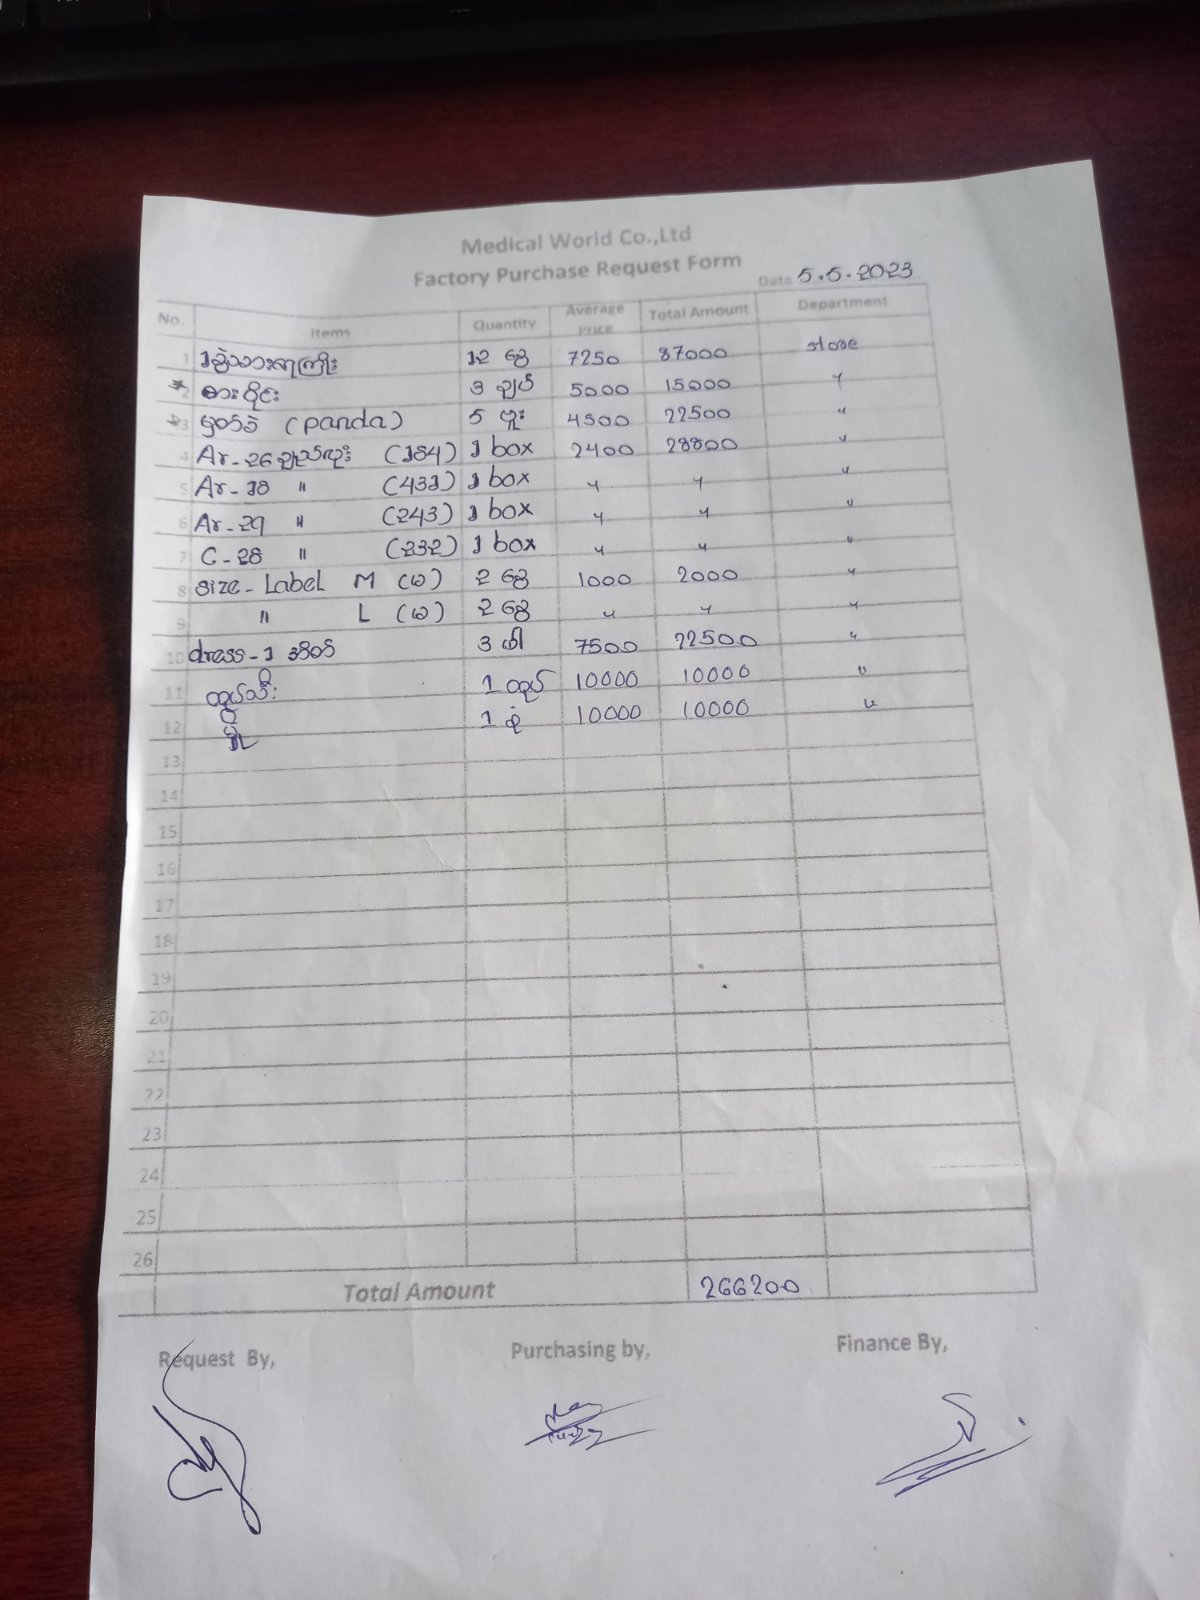 Medical World Co.,Ltd
Factory Purchase Request Form
Date 5.5.2023
No. Items Quantity Average Price Total Amount Department
1 12 ခွေ 7250 87000 store
2 ဓားဝိုင်း 3 ချပ် 5000 15000 "
3 မှတ်စ် (panda) 5 ဗူး 4500 22500 "
4 Ar-26 ချည်လုံး (184) 1 box 2400 28800 "
5 Ar-18 " (431) 1 box " " "
6 Ar-29 " (243) 1 box " " "
7 C-28 " (232) 1 box " " "
8 Size-Label M (မ) 2 ခွေ 1000 2000 "
9 " L (မ) 2 ခွေ " " "
10 dress-1 အိတ် 3 ဖါ 7500 22500 "
11 1 10000 10000 "
12 1 စုံ 10000 10000 "
13
14
15
16
17
18
19
20
21
22
23
24
25
26
Total Amount 266200
Request By, Purchasing by, Finance By,